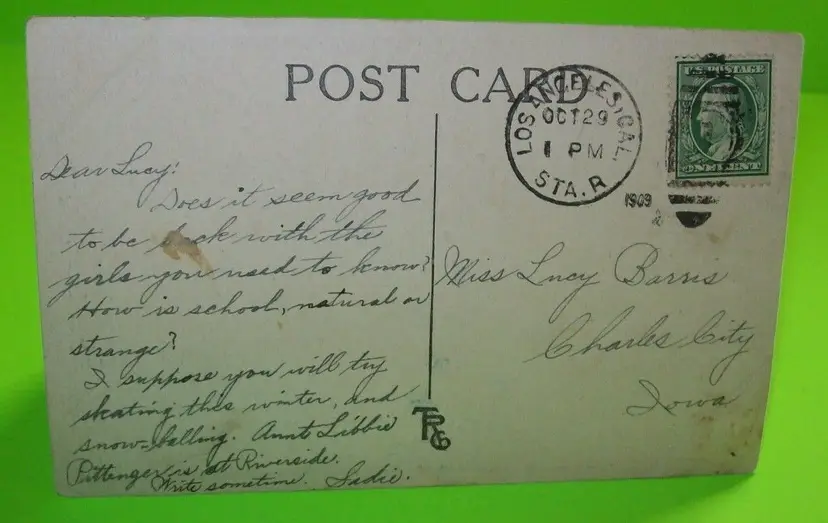 POST CARD
LOS ANGELES, CAL.
OCT 29
1 PM
STA. R
1909
Dear Lucy:
Does it seem good
to be back with the
girls you used to know?
How is school, natural or
strange?
I suppose you will try
skating this winter, and
snow-balling. Aunt Libbie
Pittenger is at Riverside.
Write sometime. Sadie.
Miss Lucy Barris
Charles City
Iowa